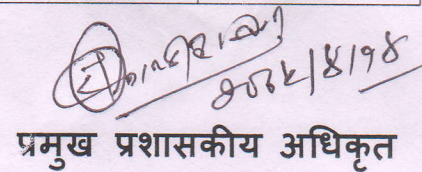 २०८२/४/१४
प्रमुख प्रशासकीय अधिकृत